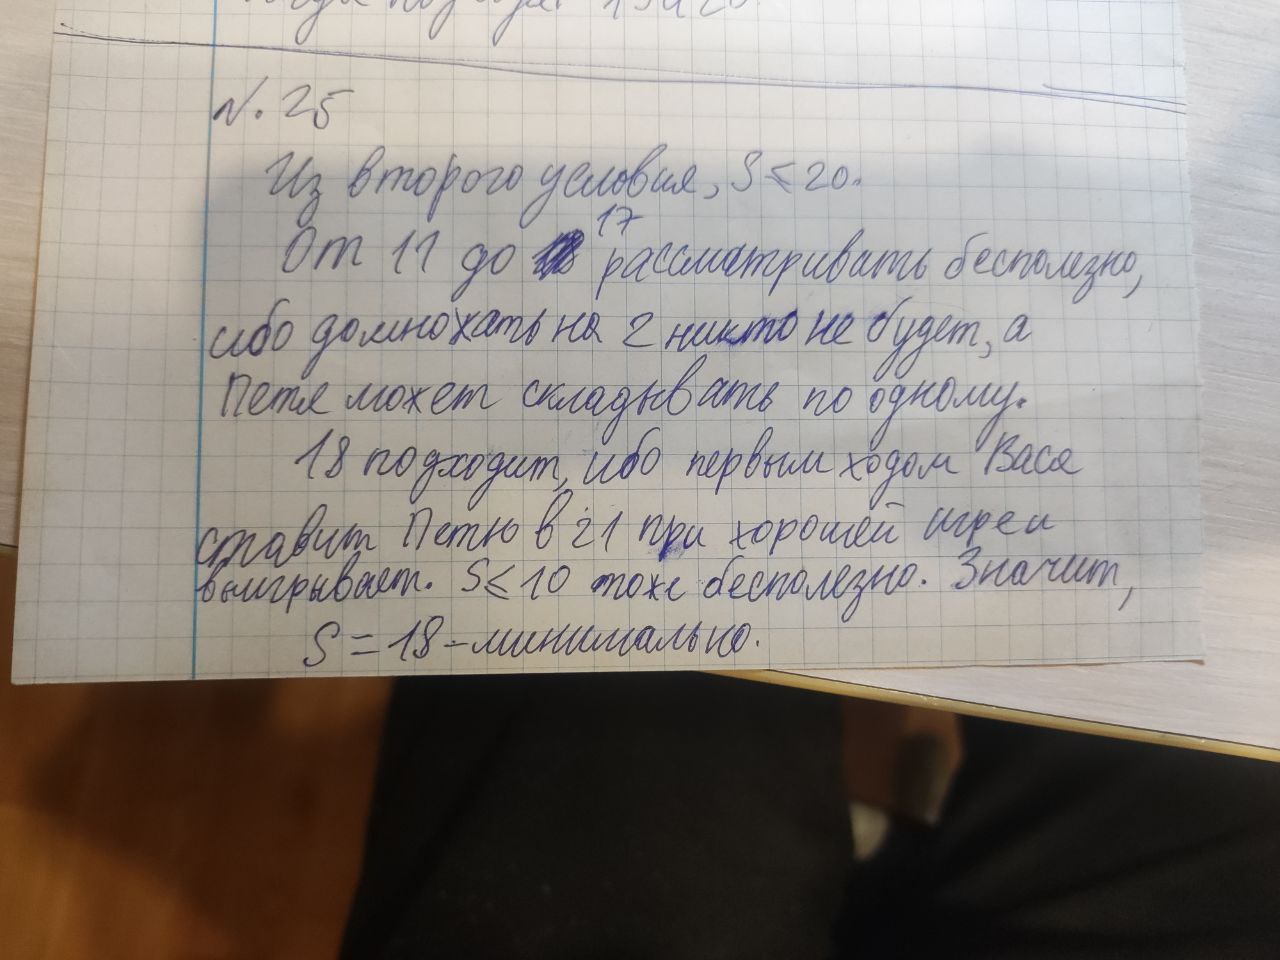 N. 25
Из второго условия, S ≤ 20.
От 11 до 17 рассматривать бесполезно,
ибо домножать на 2 никто не будет, а
Петя может складывать по одному.
18 подходит, ибо первым ходом Вася
ставит Петю в 21 при хорошей игре и
выигрывает. S ≤ 10 тоже бесполезно. Значит,
S = 18 - минимально.